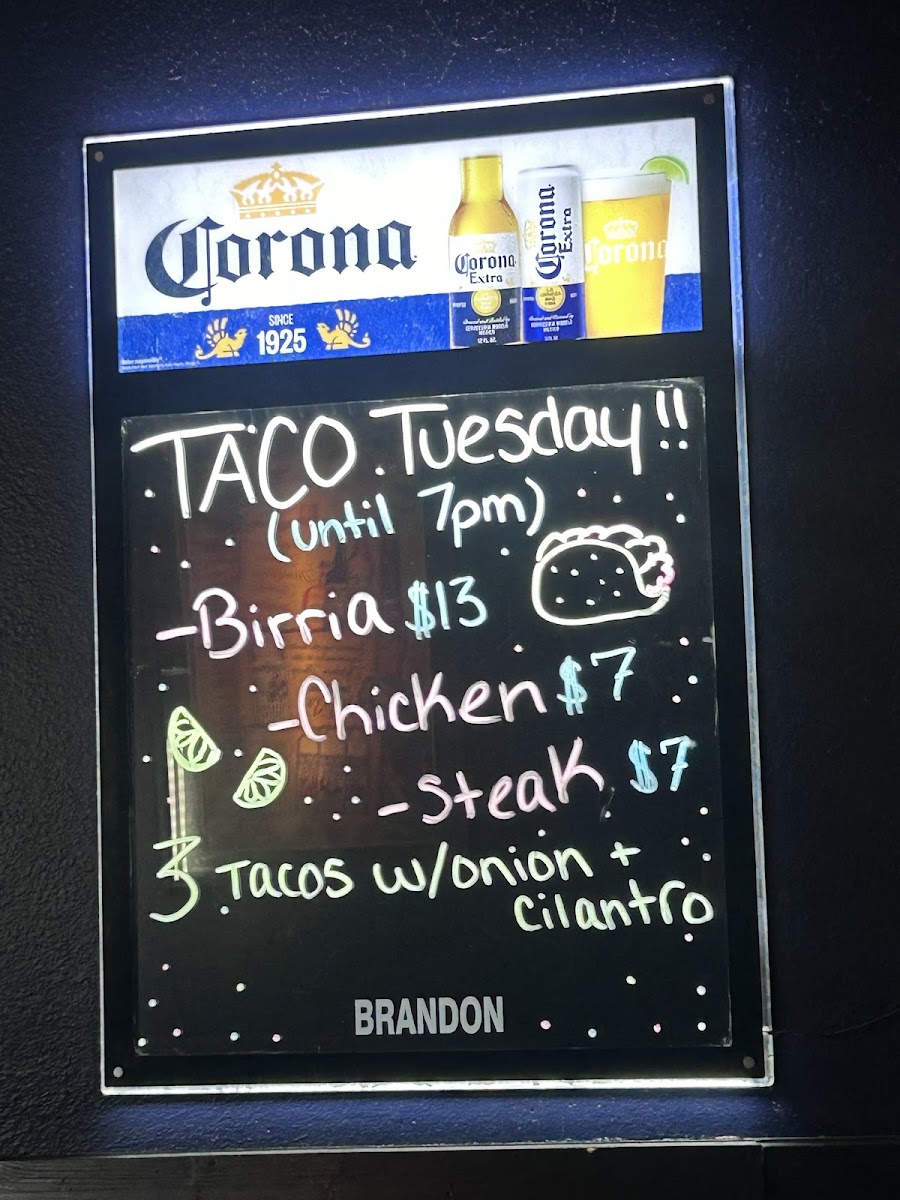 Corona
SINCE
1925
Corona
Extra
Corona
Extra
Corona
TACO Tuesday!!
(until 7pm)
-Birria $13
-Chicken $7
-Steak $7
3 Tacos w/onion +
cilantro
BRANDON